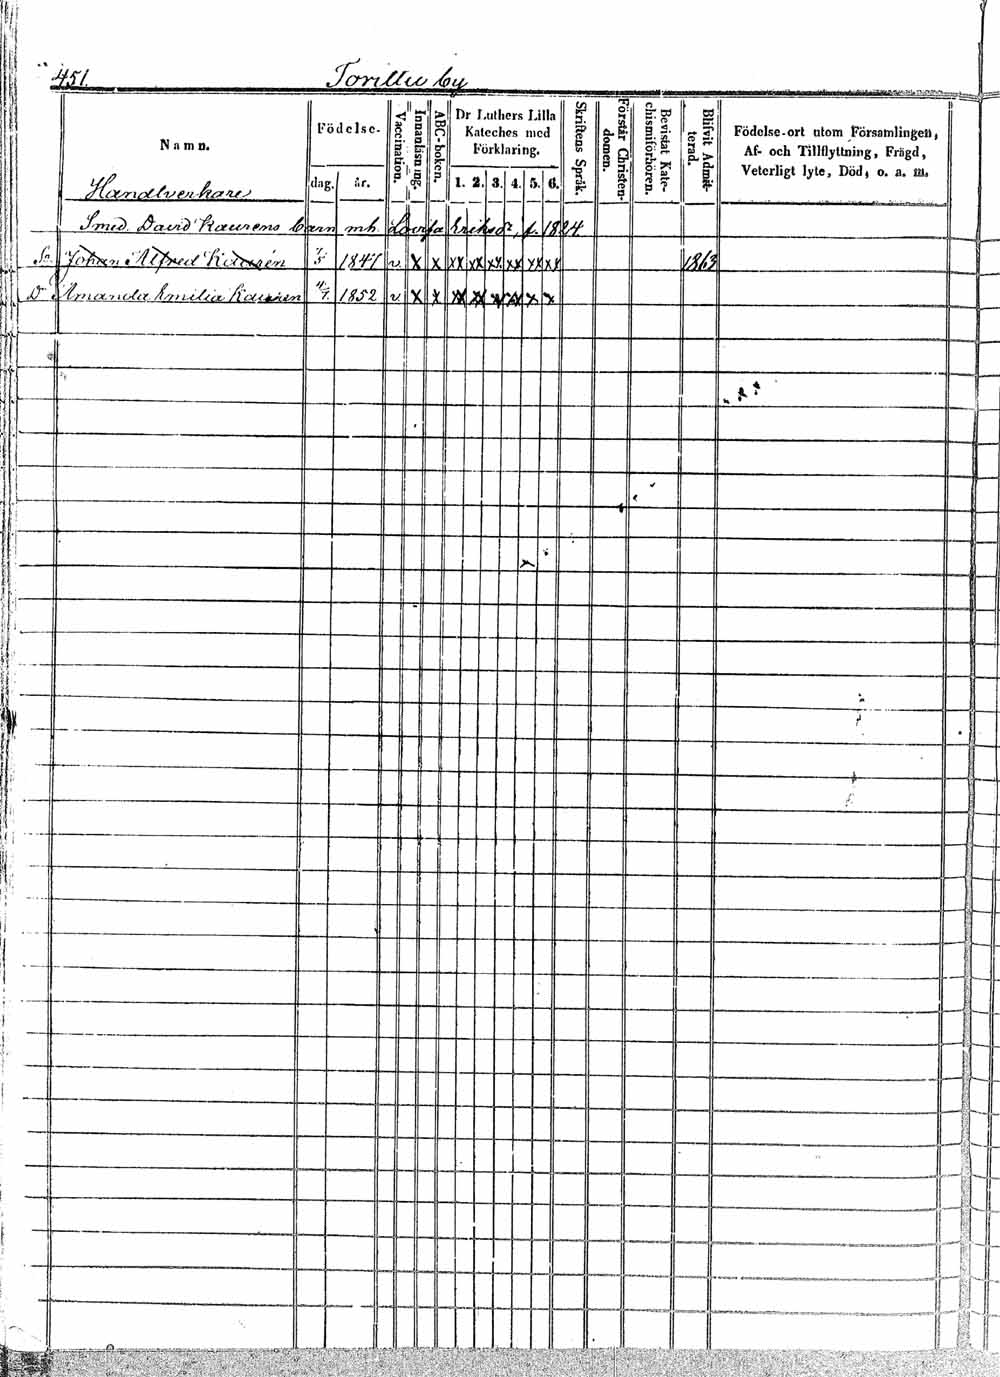 451.
Torillu by
Namn.
Födelse-
dag.
år.
Vaccination.
Innanläsning.
ABC-boken.
Dr Luthers Lilla
Kateches med
Förklaring.
1. 2. 3. 4. 5. 6.
Skriftens Språk.
Förstår Christen-
domen.
Bevistat Kate-
chismiförhören.
Blifvit Admit-
terad.
Födelse-ort utom Församlingen,
Af- och Tillflyttning, Frägd,
Veterligt lyte, Död, o. a. m.
Handtverkare
Smed. David Kaurens barn mh. Lovisa Eriksdr, f. 1824
Sn Johan Alfred Kaurén 1847 v. x x xx xx xx xx xx xx 1863
D Amanda Emilia Kauren 1852 v. x x xx xx xx xx x x